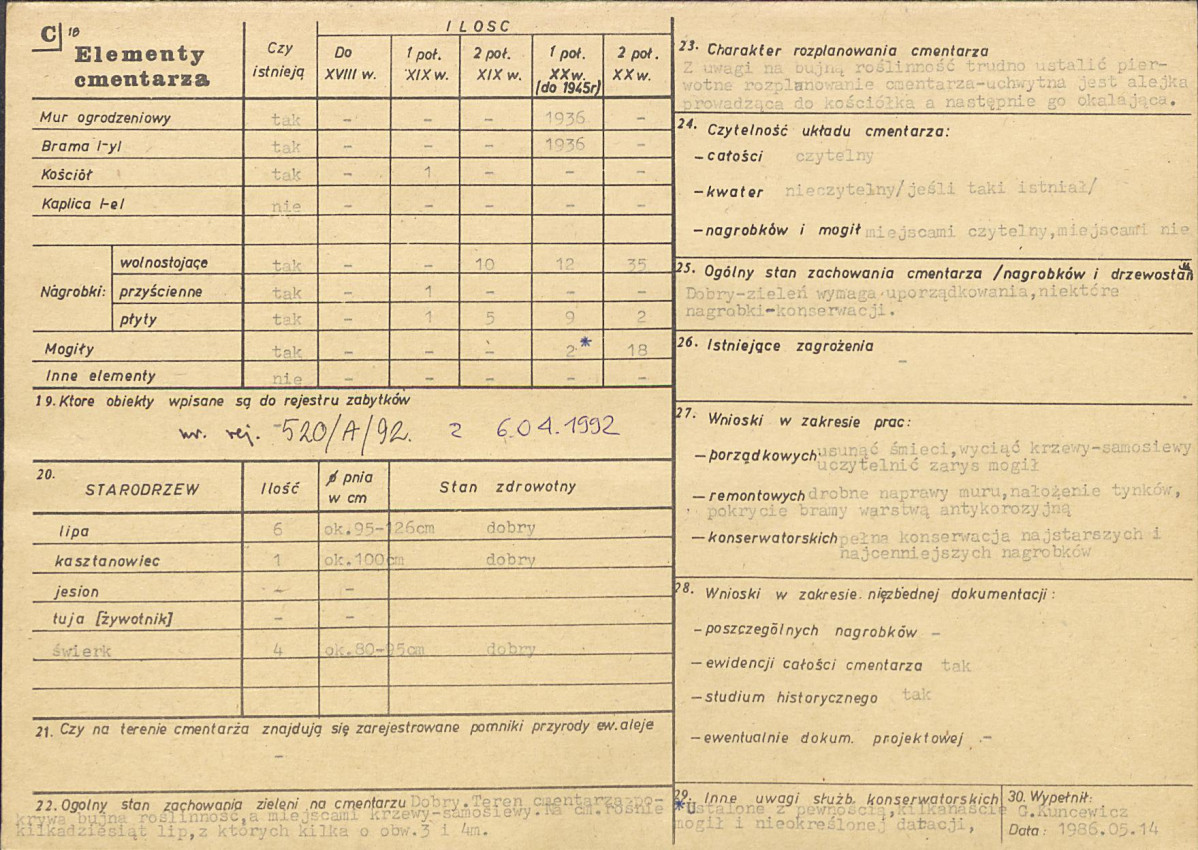 C 18
Elementy cmentarza
Czy istnieją
ILOSC
Do XVIII w.
1 poł. XIX w.
2 poł. XIX w.
1 poł. XXw. (do 1945r)
2 poł. XX w.
Mur ogrodzeniowy tak - - - 1936 -
Brama /-y/ tak - - - 1936 -
Kościół tak - 1 - - -
Kaplica /-e/ nie - - - - -
Nagrobki:
wolnostojące tak - - 10 12 35
przyścienne tak - 1 - - -
płyty tak - 1 5 9 2
Mogiły tak - - - 2* 18
Inne elementy nie - - - - -
19. Ktore obiekty wpisane są do rejestru zabytków
nr. rej. 520/A/92. z 6.04.1992
20. STARODRZEW Ilość ø pnia w cm Stan zdrowotny
lipa 6 ok.95-126cm dobry
kasztanowiec 1 ok.100cm dobry
jesion - -
tuja [żywotnik] - -
świerk 4 ok.80-95cm dobry
21. Czy na terenie cmentarza znajdują się zarejestrowane pomniki przyrody ew. aleje
-
22. Ogolny stan zachowania zieleni na cmentarzu Dobry.Teren cmentarza po-
krywa bujna roślinność,a miejscami krzewy-samosiewy.Na cm.rośnie
kilkadziesiąt lip,z których kilka o obw.3 i 4m.
23. Charakter rozplanowania cmentarza
Z uwagi na bujną roślinność trudno ustalić pier-
wotne rozplanowanie cmentarza-uchwytna jest alejka
prowadząca do kościółka a następnie go okalająca.
24. Czytelność układu cmentarza:
- całości czytelny
- kwater nieczytelny/jeśli taki istniał/
- nagrobków i mogił miejscami czytelny,miejscami nie
25. Ogólny stan zachowania cmentarza /nagrobków i drzewostan
Dobry-zieleń wymaga uporządkowania,niektóre
nagrobki-konserwacji.
26. Istniejące zagrożenia
-
27. Wnioski w zakresie prac:
- porządkowych usunąć śmieci,wyciąć krzewy-samosiewy
uczytelnić zarys mogił
- remontowych drobne naprawy muru,nałożenie tynków,
pokrycie bramy warstwą antykorozyjną
- konserwatorskich pełna konserwacja najstarszych i
najcenniejszych nagrobków
28. Wnioski w zakresie niezbędnej dokumentacji:
- poszczególnych nagrobków -
- ewidencji całości cmentarza tak
- studium historycznego tak
- ewentualnie dokum. projektowej -
29. Inne uwagi służb. konserwatorskich
*Ustalone z pewnością,kilkanaście
mogił i nieokreślonej datacji,
30. Wypełnił:
G.Kuncewicz
Data: 1986.05.14